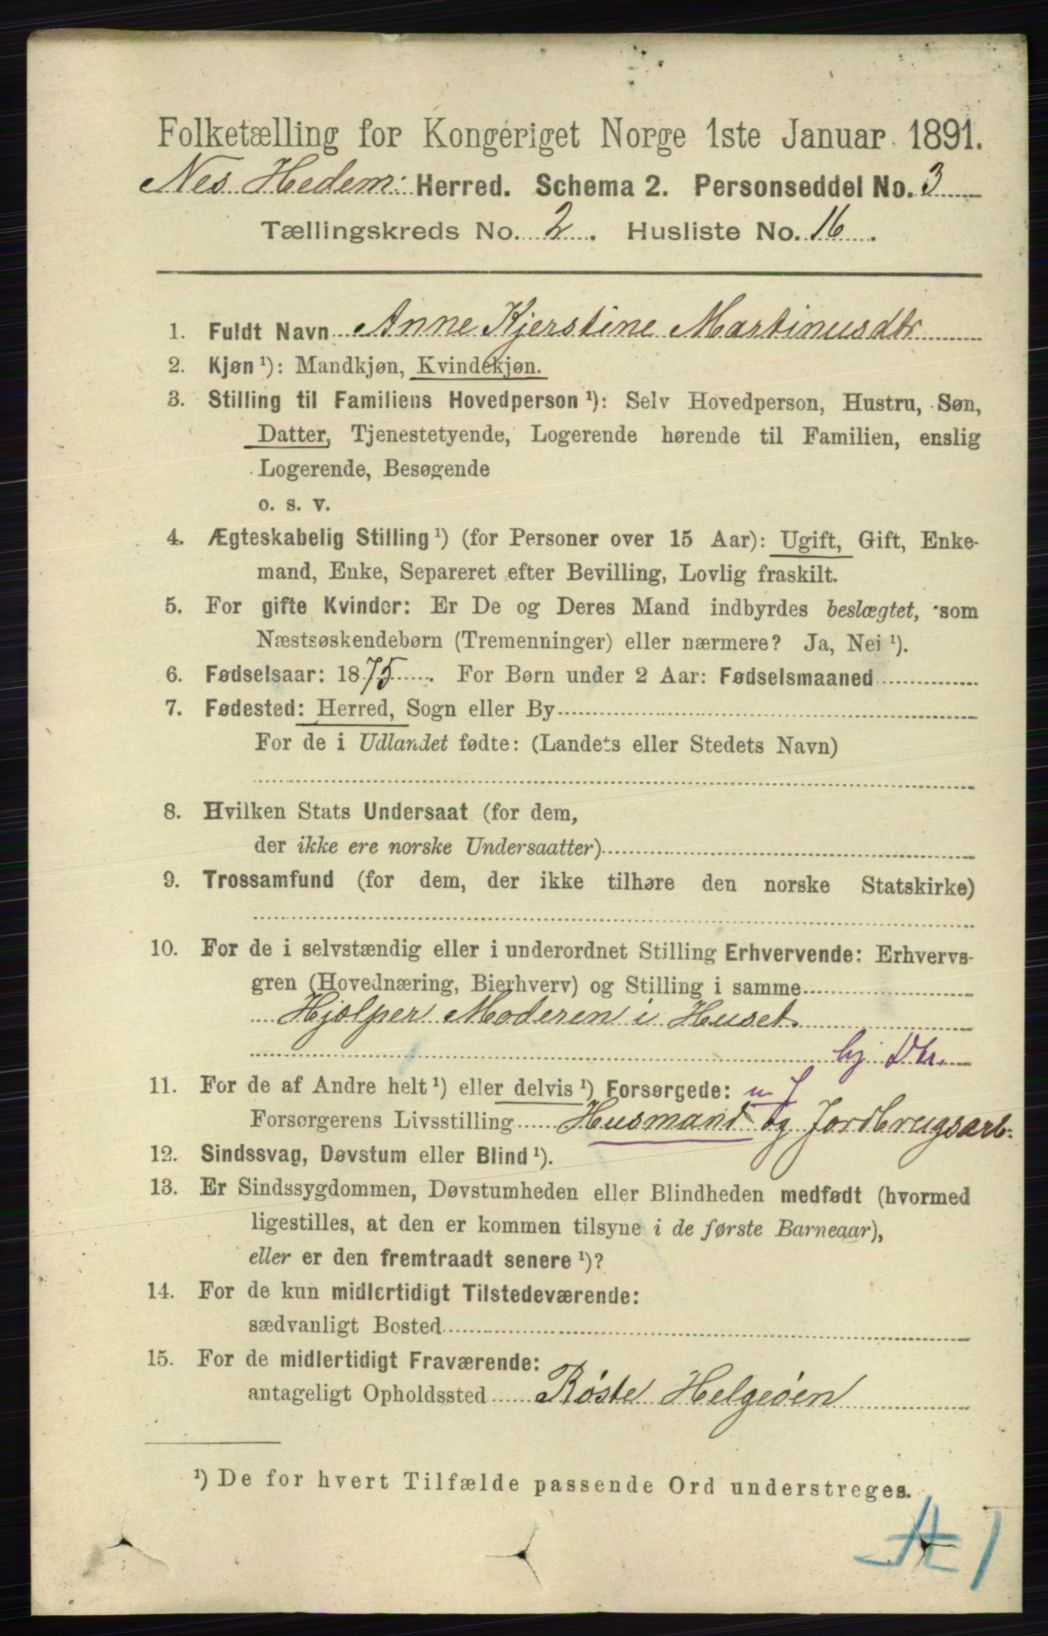 Folketælling for Kongeriget Norge 1ste Januar 1891.
Nes Hedem: Herred. Schema 2. Personseddel No. 3
Tællingskreds No. 2. Husliste No. 16.
1. Fuldt Navn Anne Kjerstine Martinusdtr
2. Kjøn ¹): Mandkjøn, Kvindekjøn.
3. Stilling til Familiens Hovedperson ¹): Selv Hovedperson, Hustru, Søn,
Datter, Tjenestetyende, Logerende hørende til Familien, enslig
Logerende, Besøgende
o. s. v.
4. Ægteskabelig Stilling ¹) (for Personer over 15 Aar): Ugift, Gift, Enke-
mand, Enke, Separeret efter Bevilling, Lovlig fraskilt.
5. For gifte Kvinder: Er De og Deres Mand indbyrdes beslægtet, som
Næstsøskendebørn (Tremenninger) eller nærmere? Ja, Nei ¹).
6. Fødselsaar: 1875. For Børn under 2 Aar: Fødselsmaaned
7. Fødested: Herred, Sogn eller By
For de i Udlandet fødte: (Landets eller Stedets Navn)
8. Hvilken Stats Undersaat (for dem,
der ikke ere norske Undersaatter)
9. Trossamfund (for dem, der ikke tilhøre den norske Statskirke)
10. For de i selvstændig eller i underordnet Stilling Erhvervende: Erhvervs-
gren (Hovednæring, Bierhverv) og Stilling i samme
Hjælper Moderen i Huset.
hj Dtr.
11. For de af Andre helt ¹) eller delvis ¹) Forsørgede: m J
Forsørgerens Livsstilling Husmand og Jordbrugsarb.
12. Sindssvag, Døvstum eller Blind ¹).
13. Er Sindssygdommen, Døvstumheden eller Blindheden medfødt (hvormed
ligestilles, at den er kommen tilsyne i de første Barneaar),
eller er den fremtraadt senere ¹)?
14. For de kun midlertidigt Tilstedeværende:
sædvanligt Bosted
15. For de midlertidigt Fraværende:
antageligt Opholdssted Røste Helgeøen
¹) De for hvert Tilfælde passende Ord understreges.